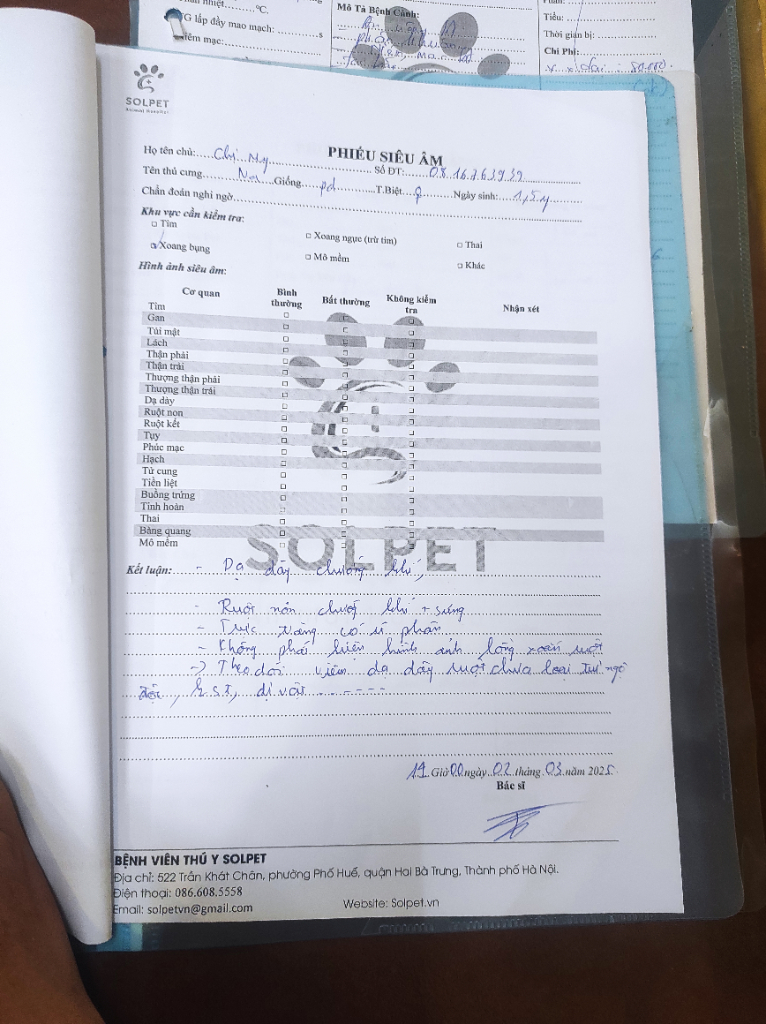 nhiệt:...........°C.
G lấp đầy mao mạch:...............s
iêm mạc:
Mô Tả Bệnh Cảnh:
Tiểu:
Thời gian bị:
Chi Phí:
SOLPET
Animal Hospital
PHIẾU SIÊU ÂM
Họ tên chủ: Chị My Số ĐT: 08.16.763939
Tên thú cưng Na Giống pd T.Biệt ♀ Ngày sinh: 1,5 y
Chẩn đoán nghi ngờ
Khu vực cần kiểm tra:
□ Tim □ Xoang ngực (trừ tim) □ Thai
☑ Xoang bụng □ Mô mềm □ Khác
Hình ảnh siêu âm:
Cơ quan Bình thường Bất thường Không kiểm tra Nhận xét
Tim □ □ □
Gan □ □ □
Túi mật □ □ □
Lách □ □ □
Thận phải □ □ □
Thận trái □ □ □
Thượng thận phải □ □ □
Thượng thận trái □ □ □
Dạ dày □ □ □
Ruột non □ □ □
Ruột kết □ □ □
Tụy □ □ □
Phúc mạc □ □ □
Hạch □ □ □
Tử cung □ □ □
Tiền liệt □ □ □
Buồng trứng □ □ □
Tinh hoàn □ □ □
Thai □ □ □
Bàng quang □ □ □
Mô mềm □ □ □
SOLPET
Kết luận: - Dạ dày chướng khí,
- Ruột non chướng khí + sưng
- Trực tràng có ứ phân
- Không phát hiện hình ảnh lồng xoắn ruột
-> Theo dõi viêm dạ dày ruột chưa loại trừ ngộ
độc, k.s.t, dị vật -----
19 Giờ 00 ngày 02 tháng 03 năm 2025
Bác sĩ
BỆNH VIÊN THÚ Y SOLPET
Địa chỉ: 522 Trần Khát Chân, phường Phố Huế, quận Hai Bà Trưng, Thành phố Hà Nội.
Điện thoại: 086.608.5558
Email: solpetvn@gmail.com Website: Solpet.vn